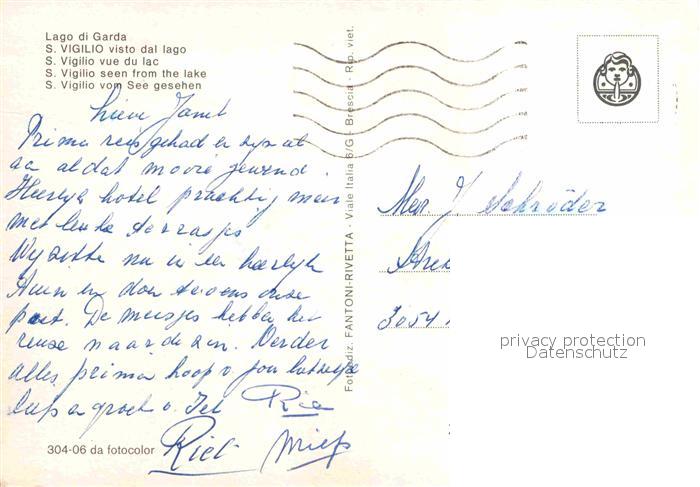 Lago di Garda
S. VIGILIO visto dal lago
S. Vigilio vue du lac
S. Vigilio seen from the lake
S. Vigilio vom See gesehen
Lieve Janet
Prima reis gehad en zyn al
aan al dat moois gewend.
Heerlyk hotel prachtig meer
met leuke terrasjes
Wy zitten nu in een heerlyke
tuin en doen tevens onze
post. De meisjes hebben het
reuze naar de zin. Verder
alles prima hoop v. jou
liefs en groet v. Jet Ria
Riet Miep
304-06 da fotocolor
Fotoediz. FANTONI-RIVETTA - Viale Italia 6/G - Brescia - Rip. viet.
J. Schröder
3054
privacy protection
Datenschutz